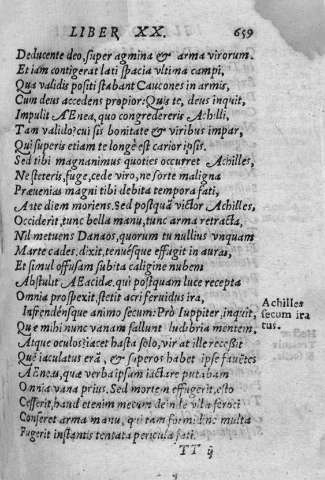 LIBER XX. 659
Deducente deo, super agmina & arma virorum.
Et iam contigerat lati spacia vltima campi,
Qua validis positi stabant Caucones in armis,
Cum deus accedens propior: Quis te, deus inquit,
Impulit AEnea, quo congredereris Achilli,
Tam valido? cui sis bonitate & viribus impar,
Qui superis etiam te longè est carior ipsis.
Sed tibi magnanimus quoties occurret Achilles,
Ne steteris, fuge, cede viro, ne sorte maligna
Præuenias magni tibi debita tempora fati,
Ante diem moriens. Sed postquā victor Achilles,
Occiderit, tunc bella manu, tunc arma retracta,
Nil metuens Danaos, quorum tu nullius vnquam
Marte cades, dixit, tenuésque effugit in auras,
Et simul offusam subita caligine nubem
Abstulit AEacidæ, qui postquam luce recepta
Omnia prospexit, stetit acri feruidus ira,
Infrendénsque animo secum: Prò Iuppiter, inquit,
Achilles secum ira tus.
Quæ mihi nunc vanam fallunt ludibria mentem,
Atque oculos? iacet hasta solo, vir at ille recessit
Quē iaculatus erā, & superos habet ipse fauētes
AEneas, quæ verba ipsum iactare putabam
Omnia vana prius. Sed mortem effugerit, esto
Cesserit, haud etenim mecum deinde vila feroci
Conseret arma manu, qui tam formidine multa
Fugerit instantis tentata pericula fati.
TT ij